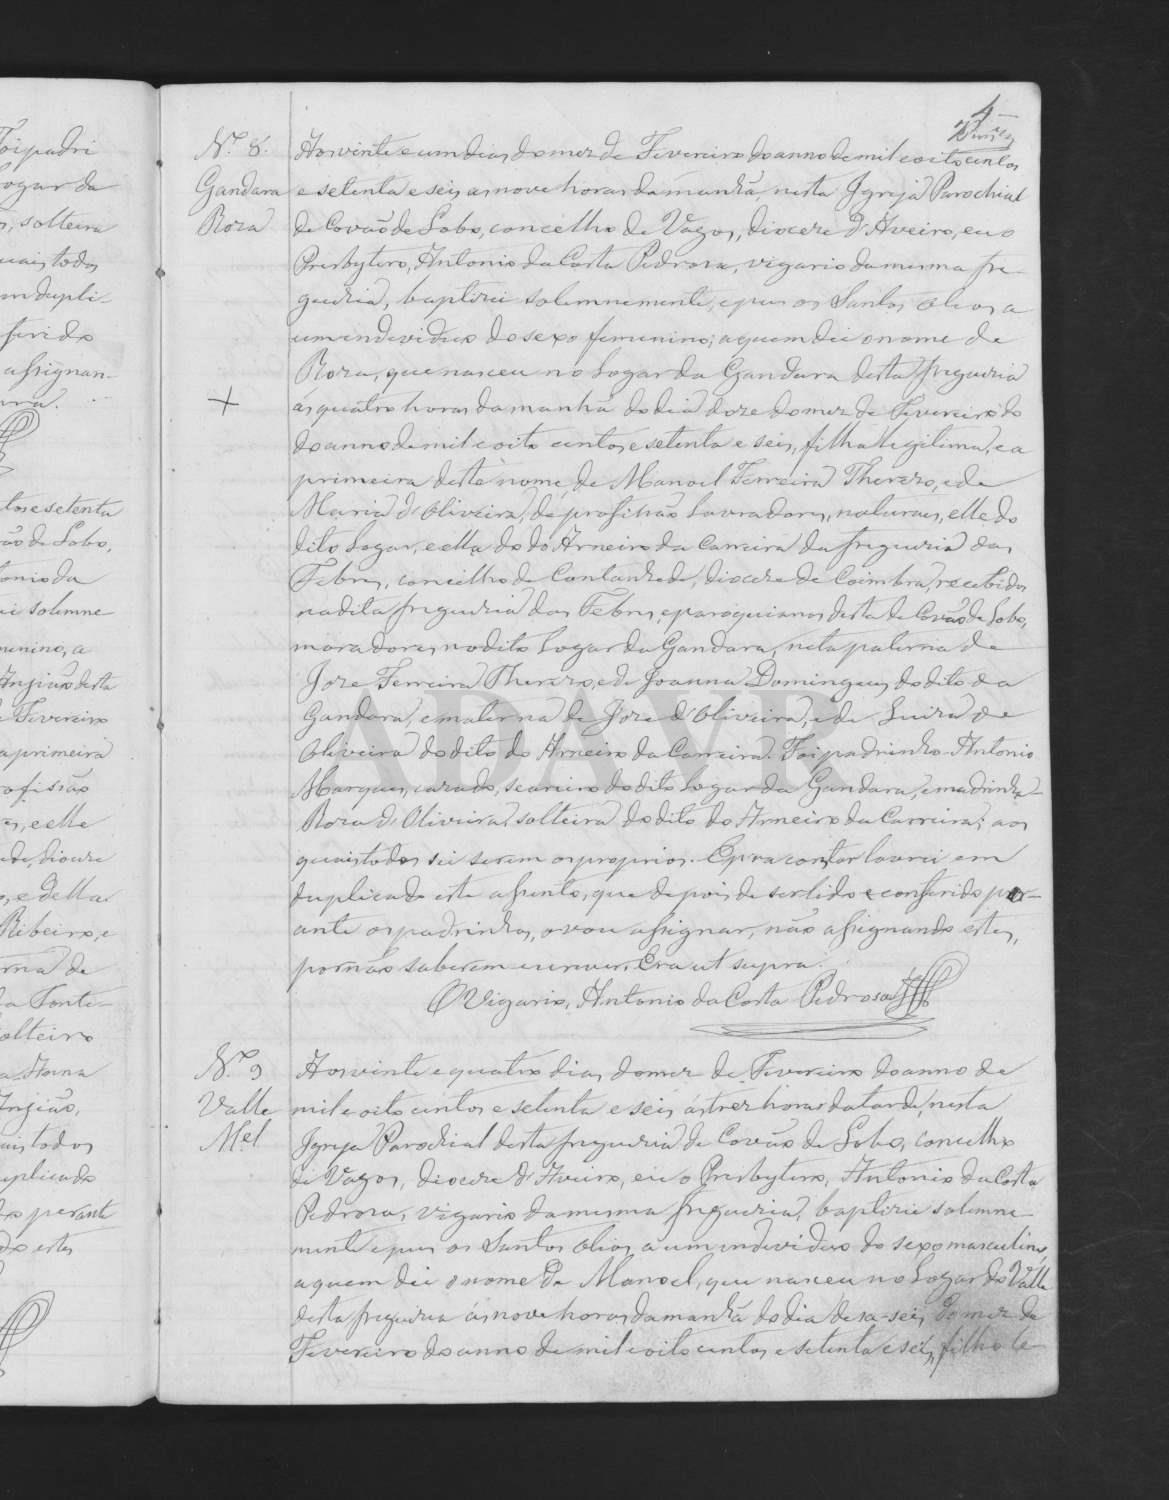 4
Nº 8.
Gandara
Roza
Aos vinte e um dias do mez de Fevereiro do anno de mil e oito centos
e setenta e seis as nove horas da manhã, nesta Igreja Parochial
de Covão de Lobo, concelho de Vagos, diocese d'Aveiro, eu o
Presbytero, Antonio da Costa Pedrosa, vigario da mesma fre-
guezia, baptizei solemnemente, e puz os Santos Oleos a
um individuo do sexo femenino; a quem dei o nome de
Roza, que nasceu no Logar da Gandara desta freguezia
ás quatro horas da manhã do dia doze do mez de Fevereiro do
do anno de mil e oito centos e setenta e seis, filha legitima, e a
primeira deste nome, de Manoel Ferreira Therezo, e de
Maria d'Oliveira, de profissão Lavradores, naturaes, elle do
dito Logar, e ella do do Arneiro da Carreira da freguezia das
Febres, concelho de Cantanhede, diocese de Coimbra, recebidos
na dita freguezia das Febres, e paroquianos desta de Covão de Lobo,
moradores no dito Logar da Gandara, neta paterna de
Joze Ferreira Therezo, e de Joanna Domingues do dito da
Gandara, e materna de Joze d'Oliveira, e de Luiza de
Oliveira do dito do Arneiro da Carreira. Foi padrinho Antonio
Marques, cazado, seareiro do dito Logar da Gandara, e madrinha
Roza d'Oliveira, solteira do dito do Arneiro da Carreira; aos
quaes todos sei serem os proprios. E para constar lavrei em
duplicado este assento, que depois de ser lido e conferido per-
ante os padrinhos, o vou assignar, não assignando estes,
por não saberem escrever. Era ut supra.
O Vigario, Antonio da Costa Pedrosa
Nº 9
Valle
Mel
Aos vinte e quatro dias do mez de Fevereiro do anno de
mil e oito centos e setenta e seis ás trez horas da tarde, nesta
Igreja Parochial desta freguezia de Covão de Lobo, concelho
de Vagos, diocese d'Aveiro, eu o Presbytero, Antonio da Costa
Pedrosa, vigario da mesma freguezia, baptizei solemne-
mente e puz os Santos Oleos a um individuo do sexo masculino,
a quem dei o nome de Manoel, que nasceu no Logar do Valle
desta freguezia ás nove horas da manhã do dia deza-seis do mez de
Fevereiro do anno de mil e oito centos e setenta e seis, filho le-
Foi padri
Logar da
solteira
uaes todos
em dupli-
ferido
assignan-
tos e setenta
ão de Lobo,
tonio da
ei solemne
menino, a
desta
Fevereiro
a primeira
ofissão
e elle
diocese
e della
Ribeiro, e
rna de
da Fonte-
olteiro
todos
uplicado
perante
do estes
ADAVR